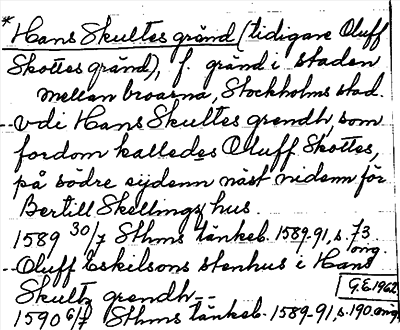 * Hans Skultes gränd (tidigare Oluff
Skottes gränd), f. gränd i staden
mellan broarna, Stockholms stad.
vdi Hans Skultes grendh, som
fordom kalledes Oluff Skottes,
på södre sijdenn näst nidenn för
Bertill Skellings hus.
1589 30/7 Sthms tänkeb. 1589-91, s. 73
orig.
Oluff Eskilsons stenhus i Hans
Skultz grendh.
G.E. 1962
1590 6/7 Sthms tänkeb. 1589-91, s. 190 orig.